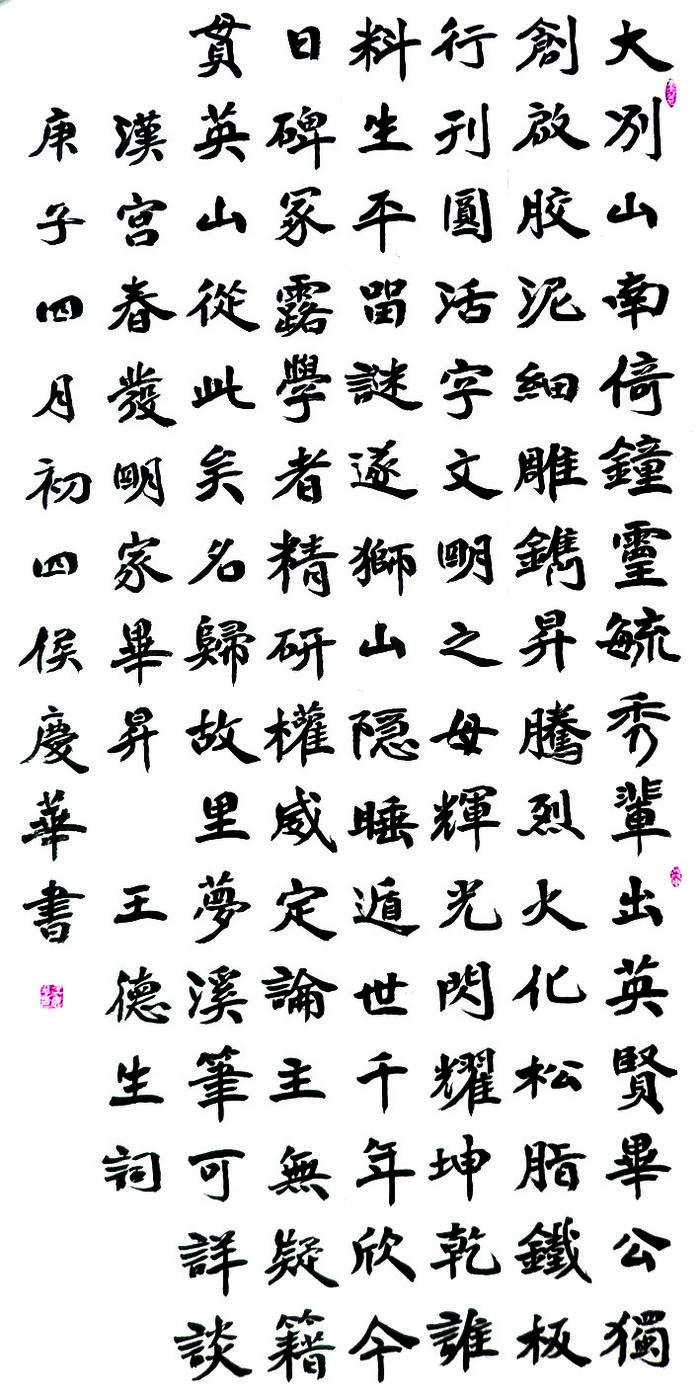 大別山南倚鐘靈毓秀輩出英賢畢公獨
創啟胶泥細雕鐫昇騰烈火化松脂鐵板
行刊圓活字文明之母輝光閃耀坤乾誰
料生平留謎遂獅山隐睡遁世千年欣今
日碑冢露學者精研權威定論主無疑籍
貫英山從此矣名歸故里夢溪筆可詳談
漢宮春發明家畢昇 王德生詞
庚子四月初四侯慶華書